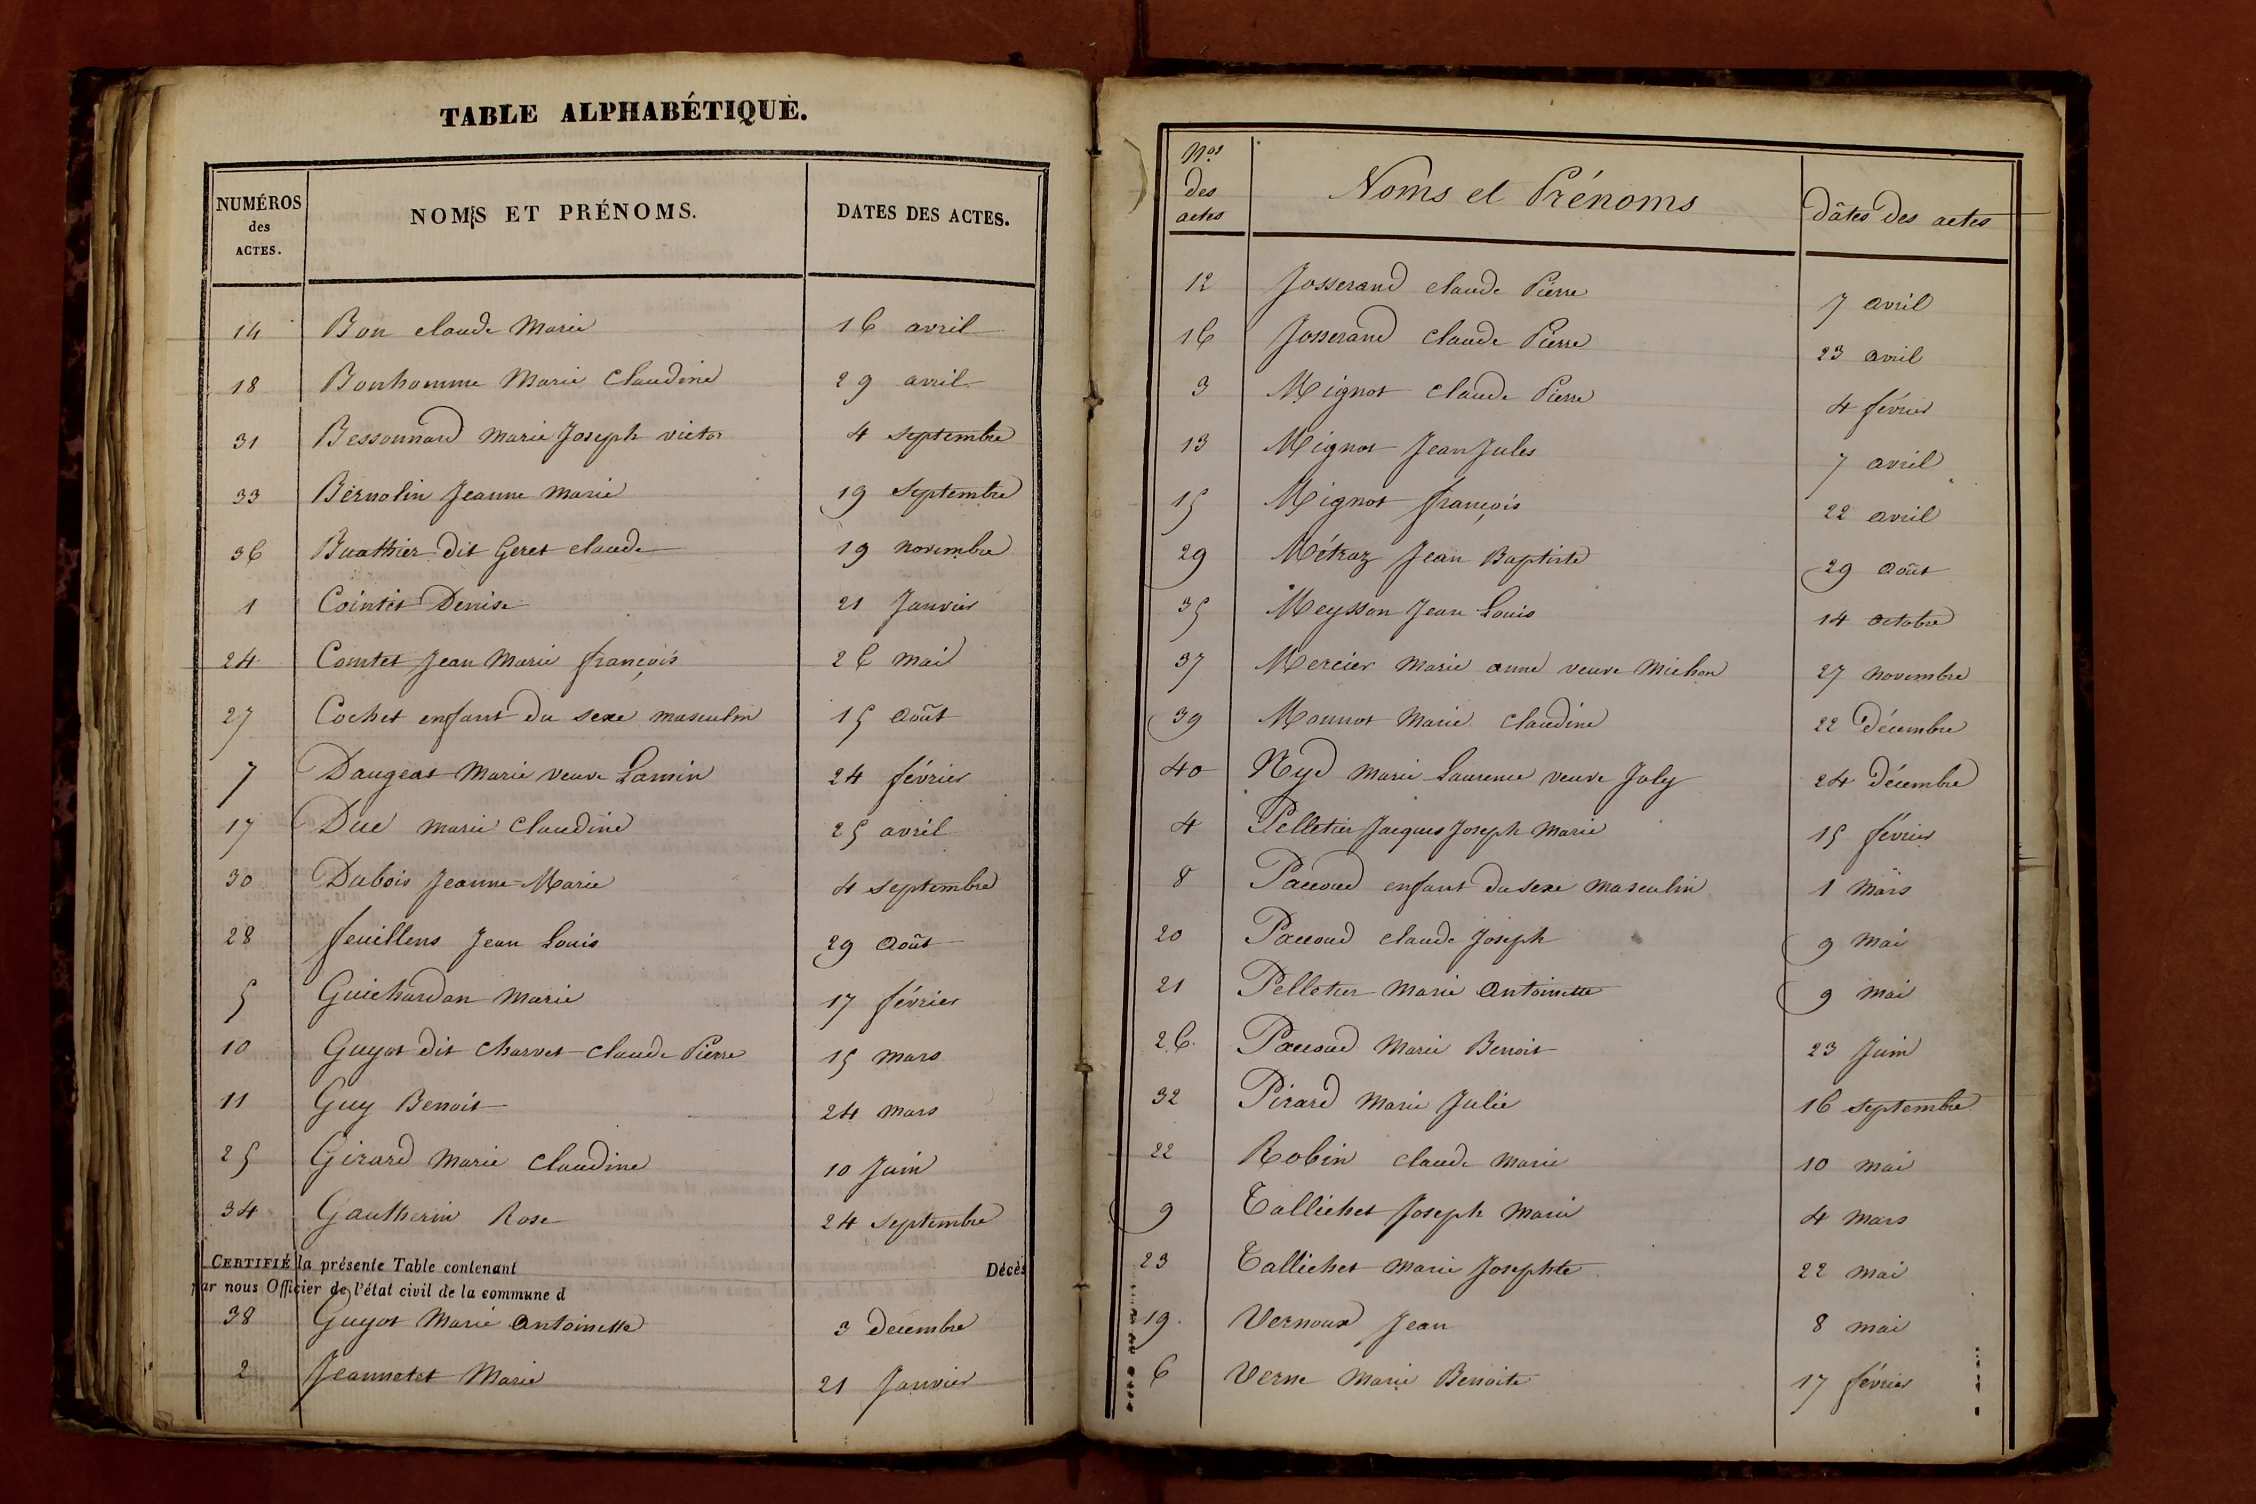 TABLE ALPHABÉTIQUE.
NUMÉROS des ACTES. NOMS ET PRÉNOMS. DATES DES ACTES.
14 Bon claude Marie 16 avril
18 Bonhomme Marie Claudine 29 avril
31 Bessonnard Marie Joseph victor 4 septembre
33 Bernolin Jeanne Marie 19 septembre
36 Buathier dit Geret claude 19 novembre
1 Cointet Denise 21 Janvier
24 Comtet Jean Marie françois 26 mai
27 Cochet enfant du sexe masculin 15 Août
7 Daugeat Marie veuve Lamin 24 février
17 Duc marie Claudine 25 avril
30 Dubois Jeanne-Marie 4 septembre
28 feuillens Jean Louis 29 Août
5 Guichardan Marie 17 février
10 Guyot dit Charvet claude Pierre 15 mars
11 Guy Benoit 24 mars
25 Girard Marie Claudine 10 Juin
34 Gautherin Rose 24 septembre
CERTIFIÉ la présente Table contenant Décès
par nous Officier de l'état civil de la commune d
38 Guyot Marie Antoinette 3 décembre
2 Jeannetet Marie 21 Janvier
Nos des actes Noms et Prénoms dâtes des actes
12 Josserand claude Pierre 7 avril
16 Josserand Claude Pierre 23 avril
3 Mignot Claude Pierre 4 février
13 Mignot Jean Jules 7 avril
15 Mignot françois 22 avril
29 Métraz Jean Baptiste 29 Août
35 Meysson Jean Louis 14 octobre
37 Mercier Marie anne veuve Michon 27 novembre
39 Monnot Marie Claudine 22 Décembre
40 Nyd Marie Laurence veuve Joly 24 Décembre
4 Pelletier Jacques Joseph Marie 15 février
8 Paccoud enfant du sexe masculin 1 Mars
20 Paccoud claude Joseph 9 Mai
21 Pelletier Marie Antoinette 9 mai
26. Paccoud Marie Benoit 23 Juin
32 Pirard Marie Julie 16 septembre
22 Robin Claude Marie 10 mai
9 Tallichet Joseph Marie 4 mars
23 Tallichet Marie Josephte 22 mai
19. Vernoux Jean 8 mai
6 Verne Marie Benoite 17 février